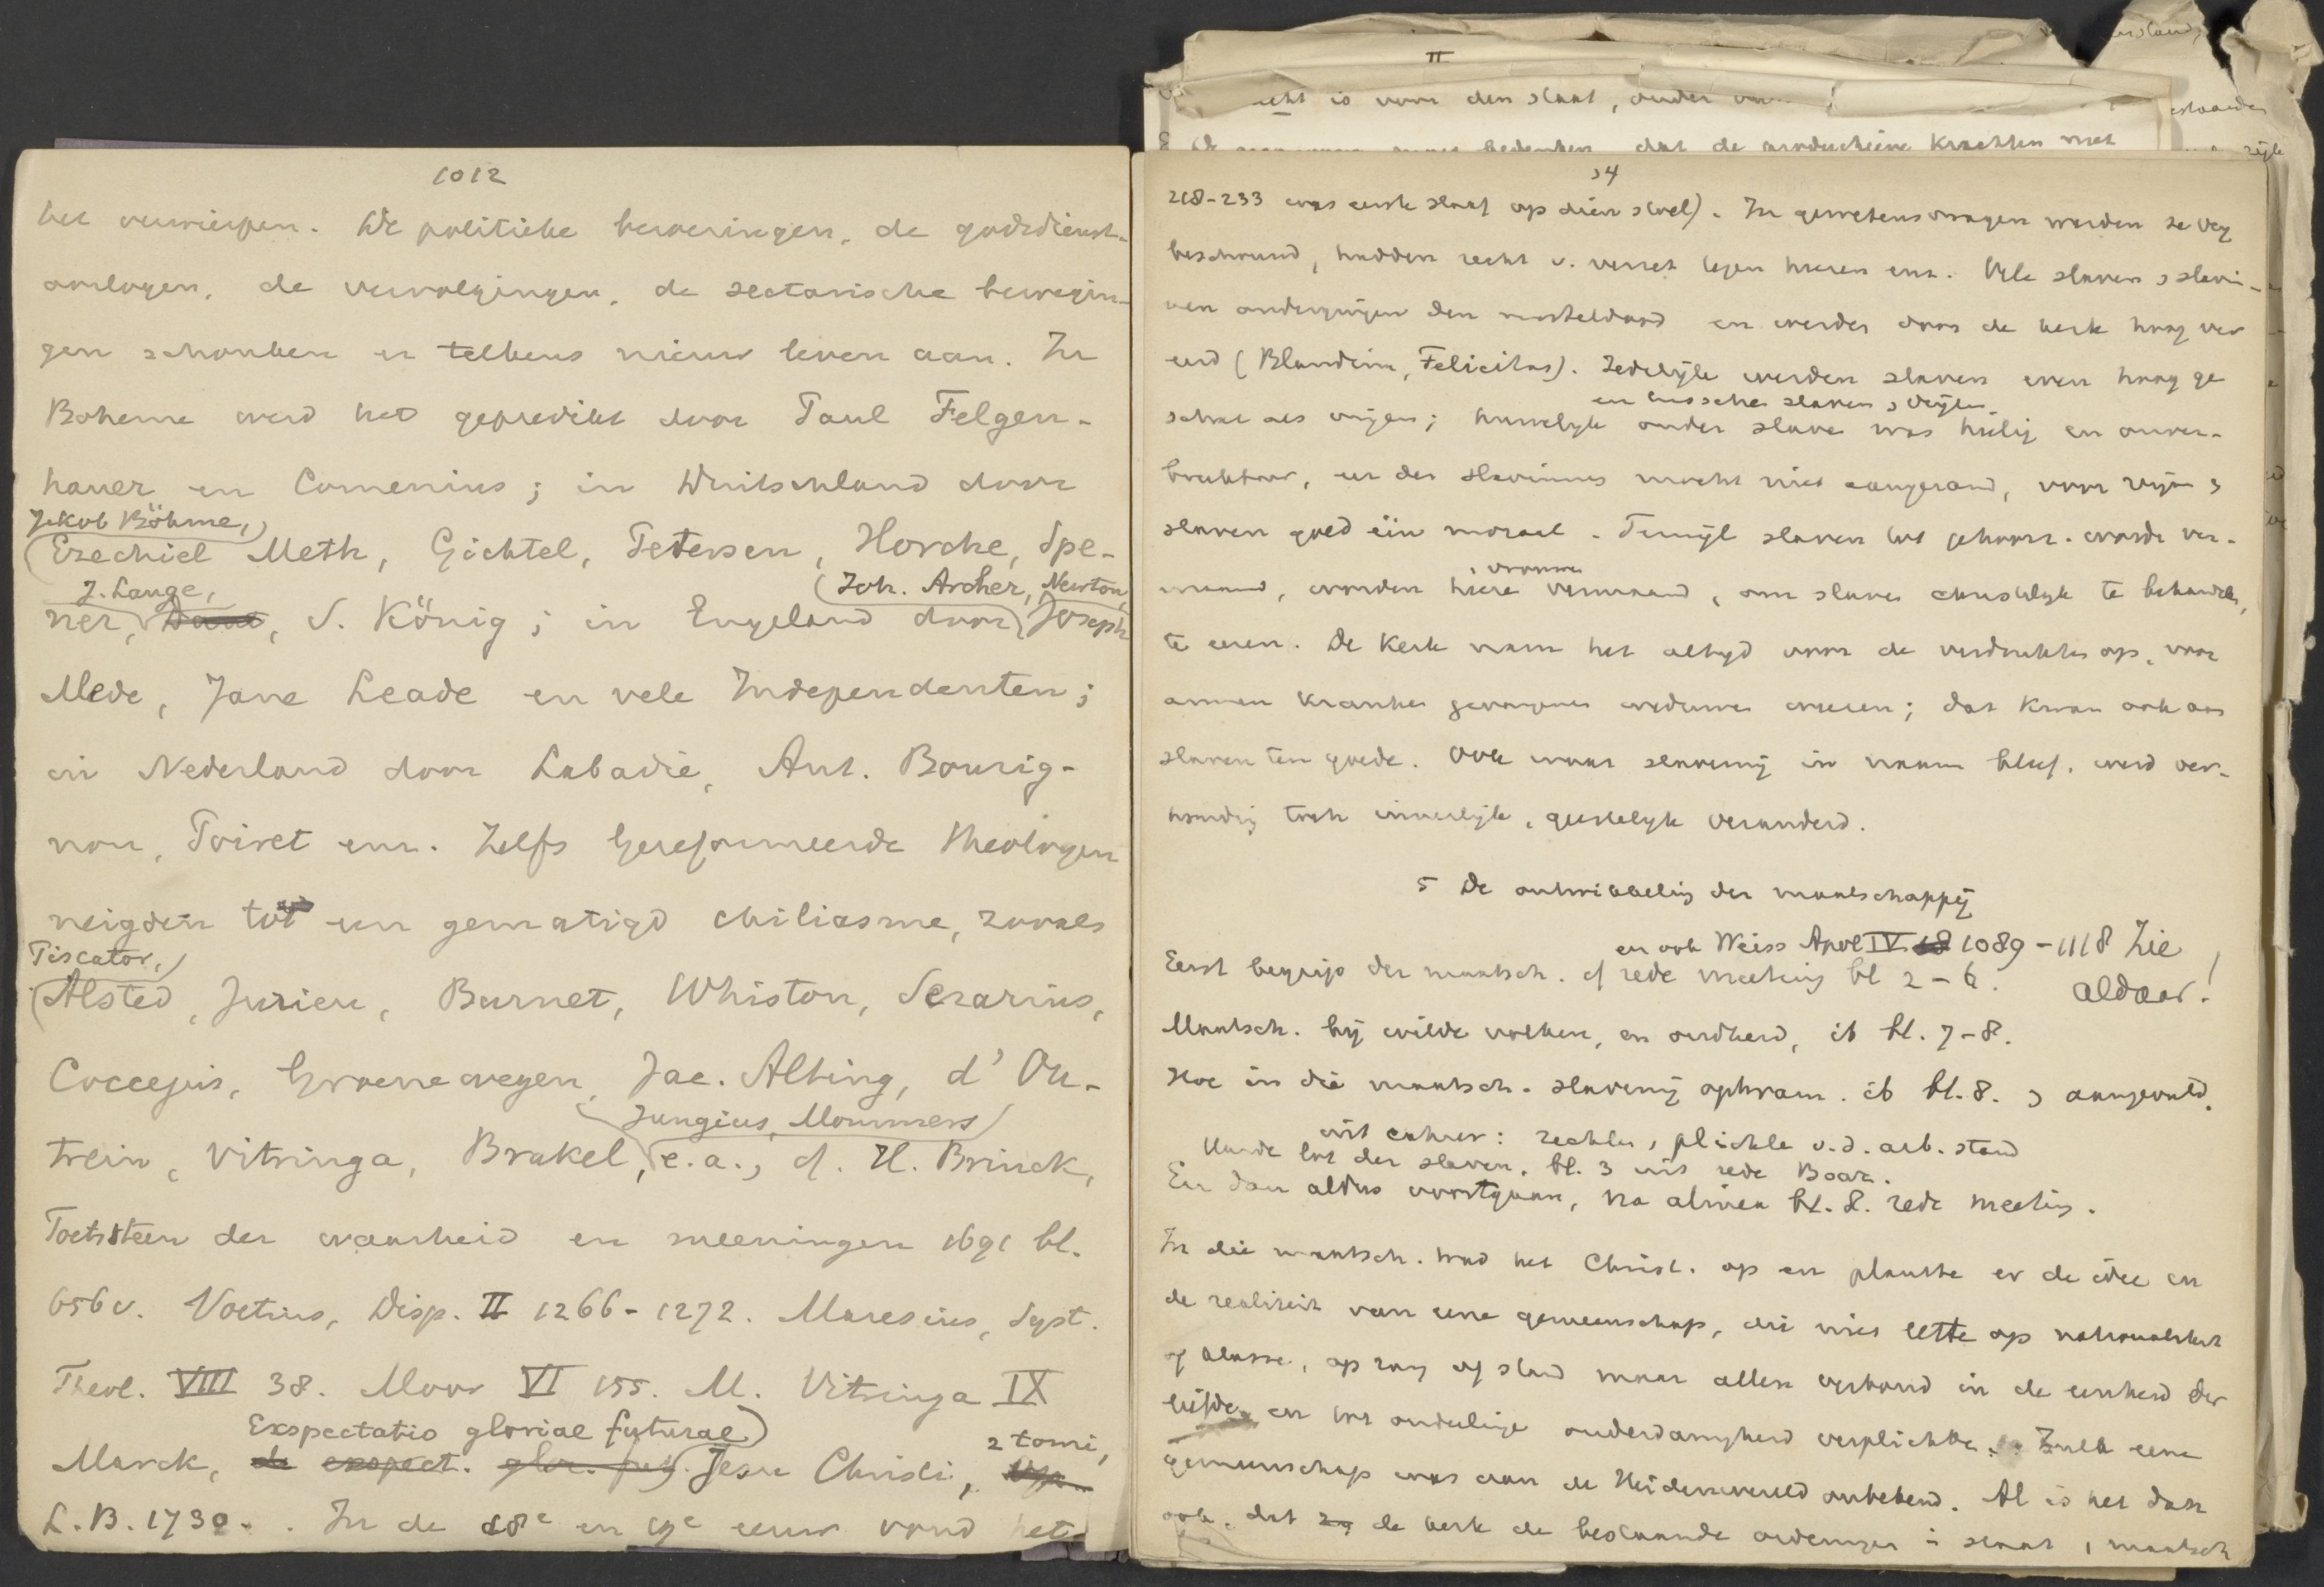 1012
het verwierpen. De politieke beroeringen, de godsdienst-
oorlogen, de vervolgingen, de sectarische bewegin-
gen schonken er telkens nieuw leven aan. In
Boheme werd het gepredikt door Paul Felgen-
hauer en Comenius; in Duitschland door
Jakob Böhme,
Ezechiel Meth, Gichtel, Petersen, Horche, Spe-
J. Lange, Joh. Archer, Newton,
ner, S. König; in Engeland door Joseph
Mede, Jane Leade en vele Independenten;
in Nederland door Labadie, Ant. Bourig-
non, Poiret enz. Zelfs Gereformeerde theologen
neigden tot een gematigd chiliasme, zooals
Piscator,
Alsted, Jurieu, Burnet, Whiston, Serarius,
Coccejus, Groenewegen, Jac. Alting, d'Ou-
Jungius, Mommers
trein, Vitringa, Brakel, e.a., cf. H. Brinck,
Toetssteen der waarheid en meeningen 1691 bl.
656 v. Voetius, Disp. II 1266-1272. Maresius, Syst.
Theol. VIII 38. Moor VI 155. M. Vitringa IX
Exspectatio gloriae futurae 2 tomi,
Marck, de exspect. glor. fut. Jesu Christi,
L.B. 1730. In de 18e en 19e eeuw vond het
II
is voor den staat, onder
bedenken, dat de productieve krachten met
34
218-233 was eerst slaaf op dien stoel). In gewetensvragen werden ze vrij
beschouwd, hadden recht v. verzet tegen heeren enz. Vele slaven, slavin-
nen ondergingen den marteldood en werden door de kerk hoog ver
eerd (Blandina, Felicitas). Zedelijk werden slaven even hoog ge
en tusschen slaven, vrijen
schat als vrijen; huwelijk onder slaven was heilig en onver-
breekbaar, eer der slavinnen mocht niet aangerand, voor vrijen,
slaven gold één moraal. Terwijl slaven tot gehoorz. worden ver-
vrouwen
maand, worden heeren vermaand, om slaven christelijk te behandelen,
te eeren. De Kerk nam het altijd voor de verdrukten op, voor
armen kranken gevangenen weduwen weezen; dat kwam ook aan
slaven ten goede. Ook waar slavernij in naam bleef, werd ver-
houding toch innerlijk, geestelijk veranderd.
5 De ontwikkeling der maatschappij
en ook Weiss Apol IV 1089-1118 Zie
Eerst begrip der maatsch. cf rede meeting bl 2-6. aldaar!
Maatsch. bij wilde volken, en oudheid, ib bl. 7-8.
Hoe in die maatsch. slavernij opkwam. ib bl. 8. , aangevuld.
uit cahier: rechten, plichten v.d. arb. stand
Harde lot der slaven. bl. 3 uit rede Boaz.
En dan aldus voortgaan, na alinea bl. 8. rede meeting.
In die maatsch. trad het Christ. op en plantte er de idee en
de realiteit van eene gemeenschap, die niet lette op nationaliteit
of klasse, op rang of stand maar allen verbond in de eenheid der
liefde en tot onderlinge onderdanigheid verplichtte. Zulk eene
gemeenschap was aan de Heidenwereld onbekend. Al is het dan
ook, dat de kerk de bestaande ordeningen in staat, maatsch